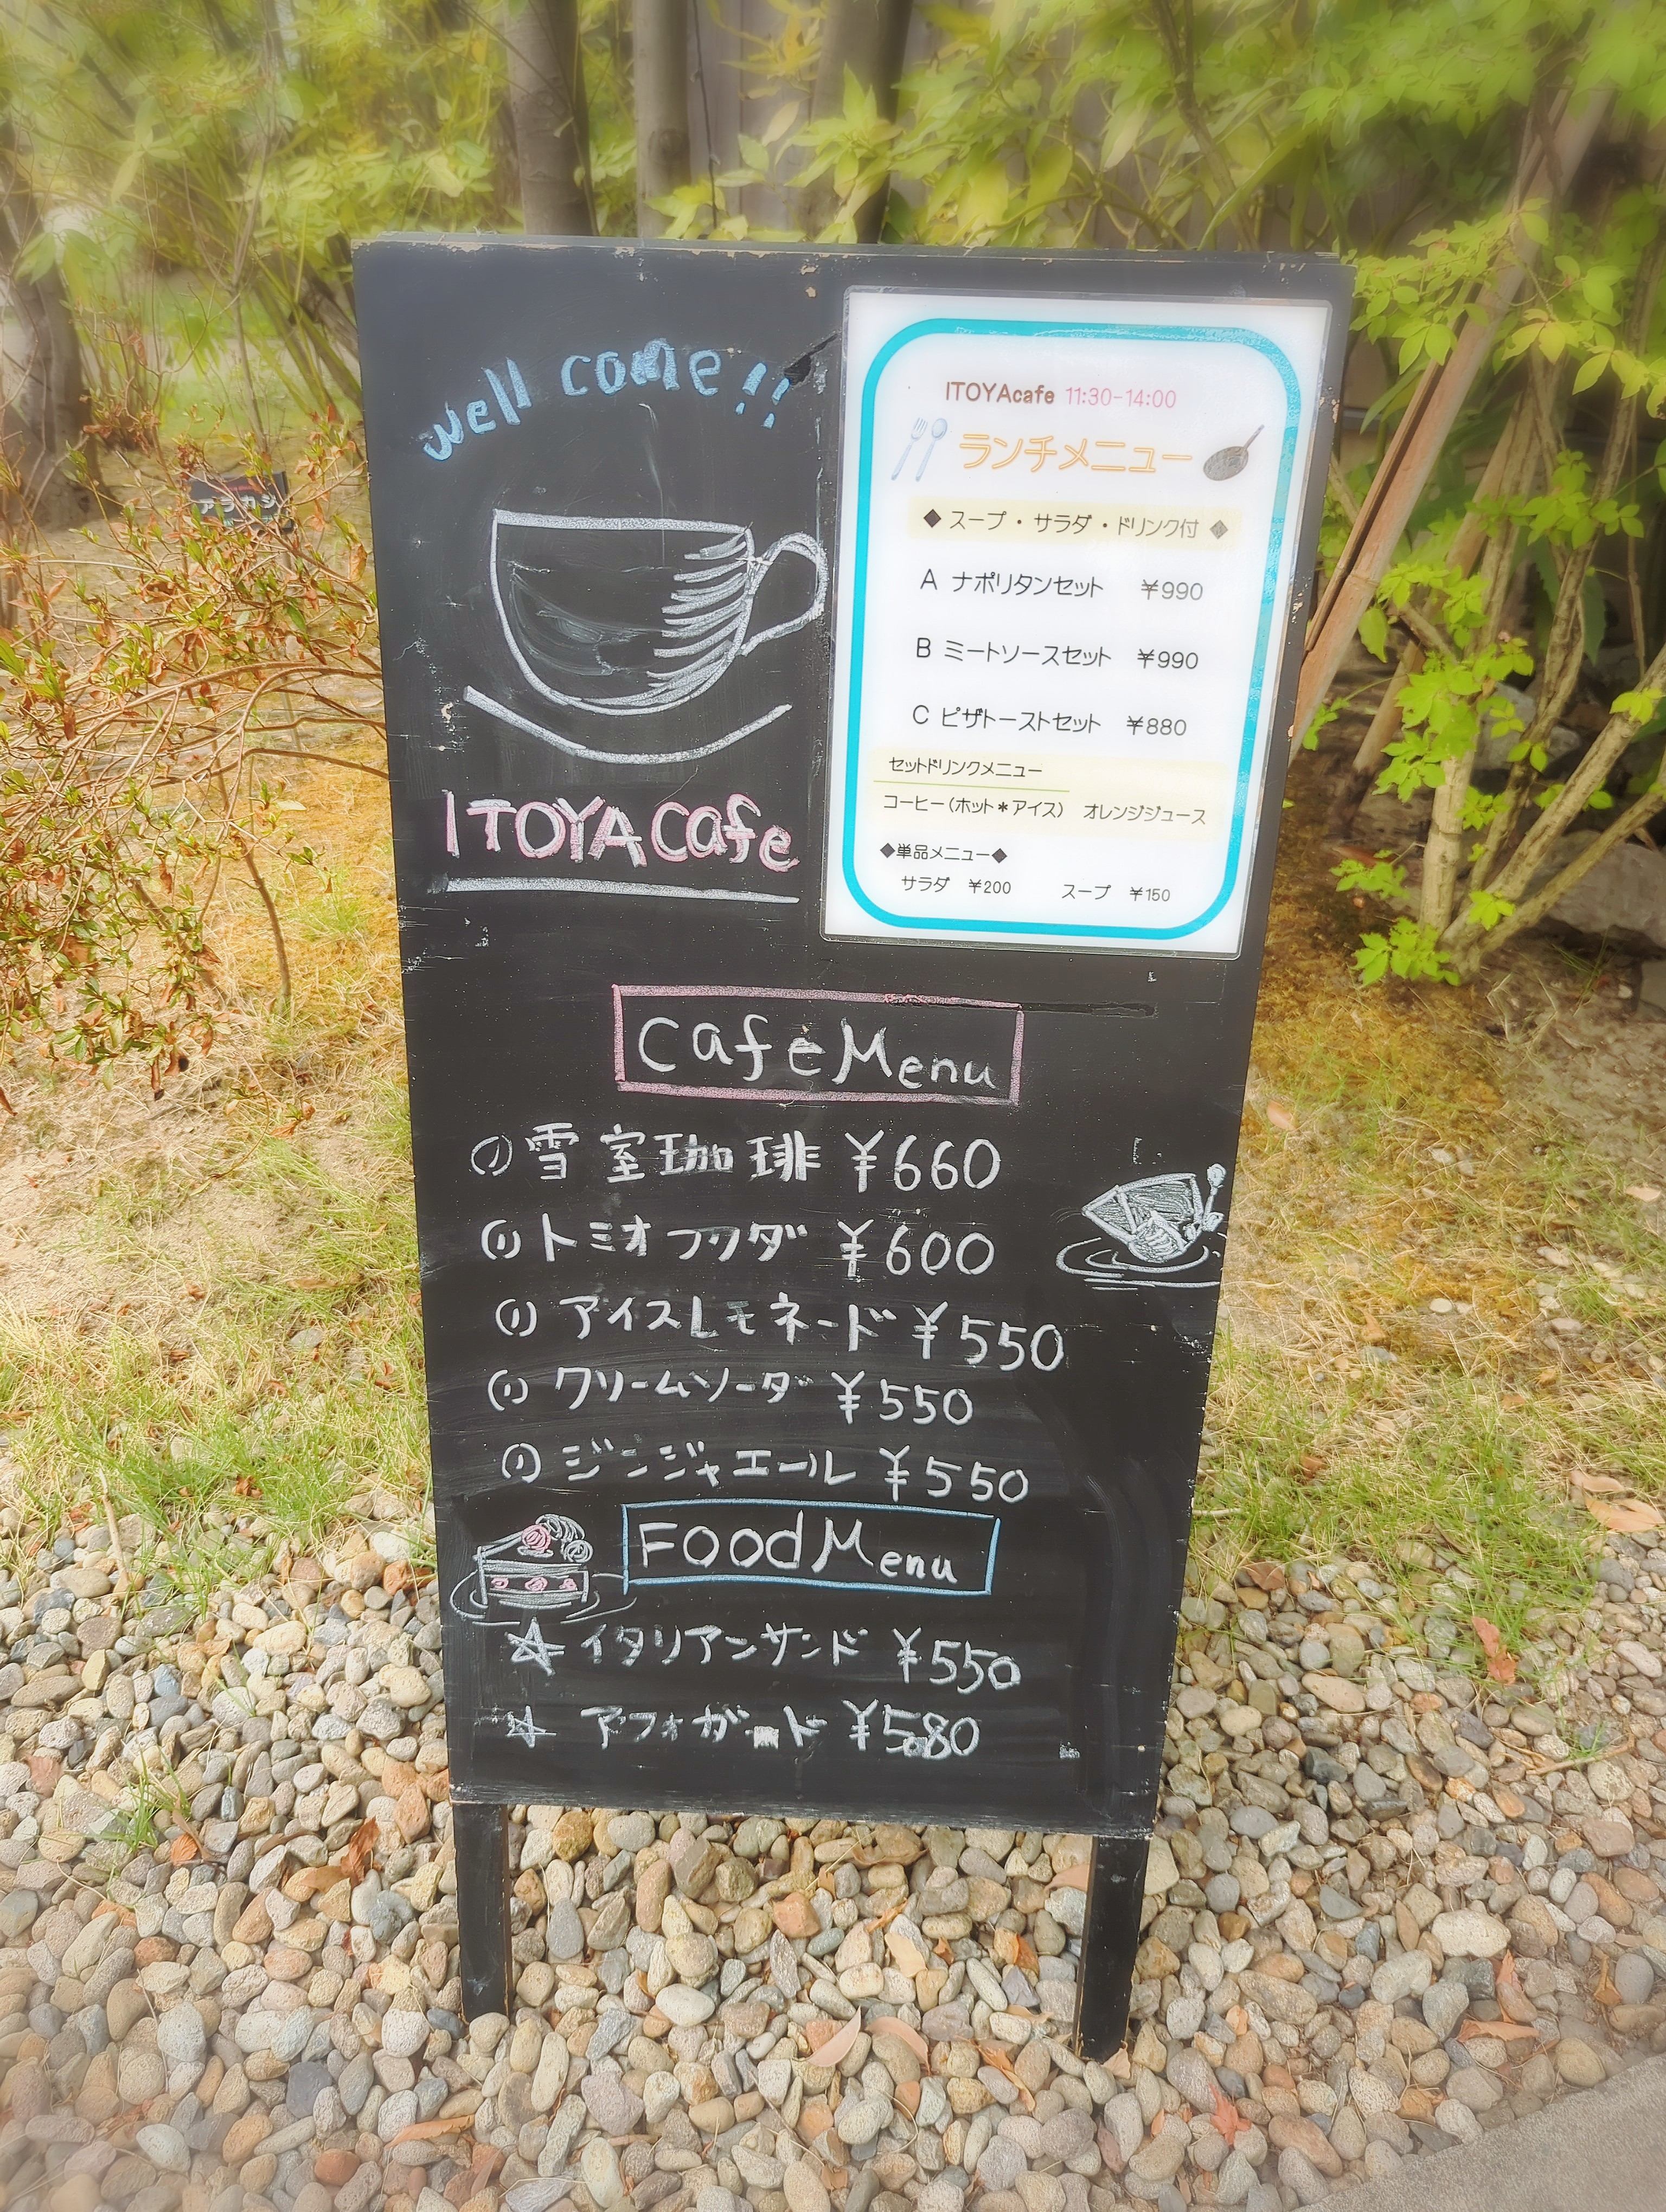 well come!!
ITOYA Cafe
ITOYAcafe 11:30-14:00
ランチメニュー
◆ スープ・サラダ・ドリンク付 ◆
A ナポリタンセット ¥990
B ミートソースセット ¥990
C ピザトーストセット ¥880
セットドリンクメニュー
コーヒー(ホット*アイス) オレンジジュース
◆単品メニュー◆
サラダ ¥200 スープ ¥150
Cafe Menu
雪室珈琲 ¥660
トミオフクダ ¥600
アイスレモネード ¥550
クリームソーダ ¥550
ジンジャエール ¥550
Food Menu
☆ イタリアンサンド ¥550
☆ アフォガード ¥580
アラカシ